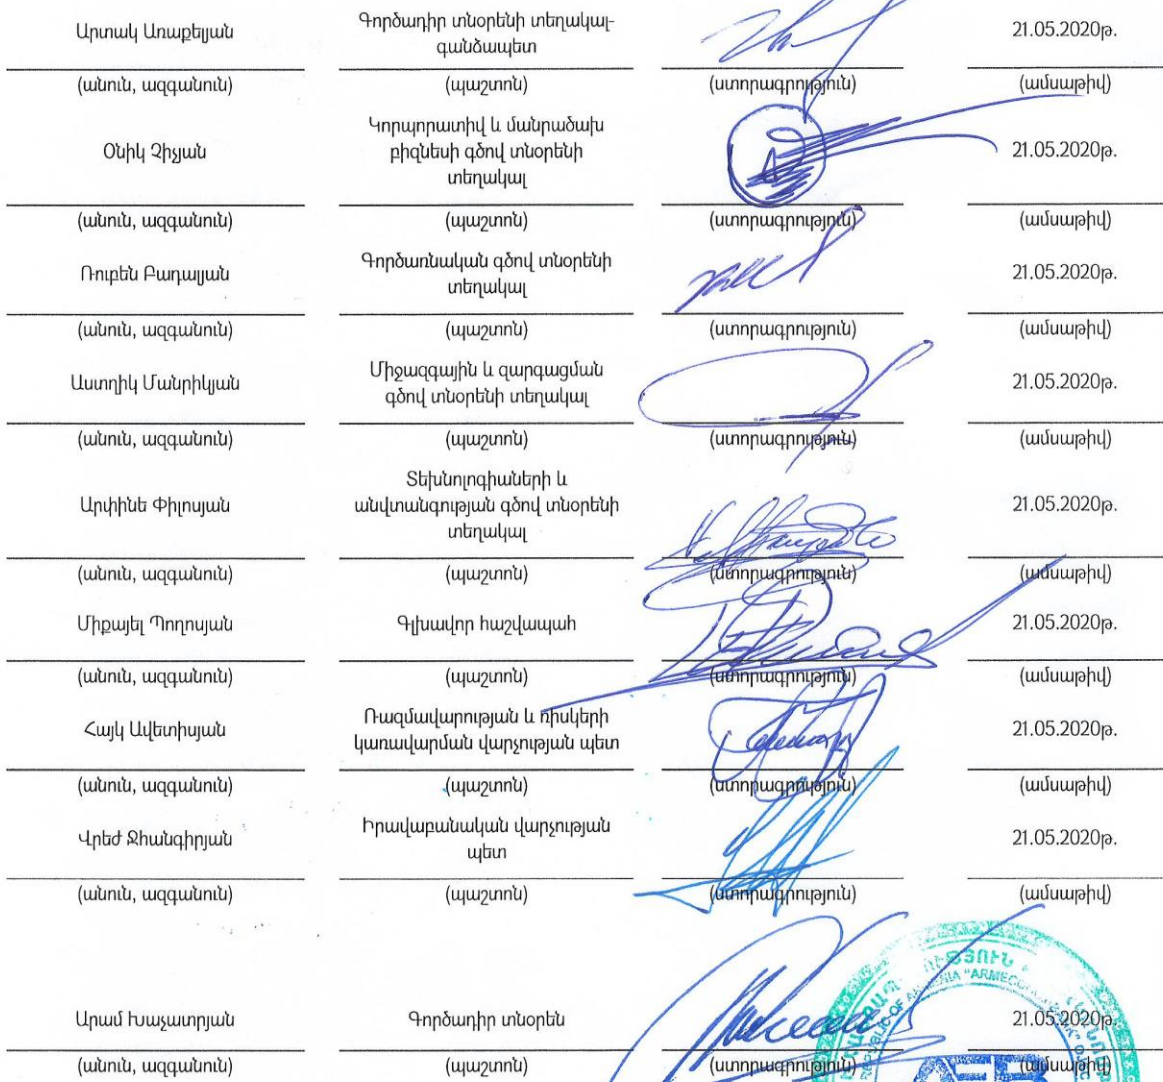 Արտակ Առաքելյան
Գործադիր տնօրենի տեղակալ-
գանձապետ
21.05.2020թ.
(անուն, ազգանուն) (պաշտոն) (ստորագրություն) (ամսաթիվ)
Օնիկ Չիչյան
Կորպորատիվ և մանրածախ
բիզնեսի գծով տնօրենի
տեղակալ
21.05.2020թ.
(անուն, ազգանուն) (պաշտոն) (ստորագրություն) (ամսաթիվ)
Ռուբեն Բադալյան
Գործառնական գծով տնօրենի
տեղակալ
21.05.2020թ.
(անուն, ազգանուն) (պաշտոն) (ստորագրություն) (ամսաթիվ)
Աստղիկ Մանրիկյան
Միջազգային և զարգացման
գծով տնօրենի տեղակալ
21.05.2020թ.
(անուն, ազգանուն) (պաշտոն) (ստորագրություն) (ամսաթիվ)
Արփինե Փիլոսյան
Տեխնոլոգիաների և
անվտանգության գծով տնօրենի
տեղակալ
21.05.2020թ.
(անուն, ազգանուն) (պաշտոն) (ստորագրություն) (ամսաթիվ)
Միքայել Պողոսյան Գլխավոր հաշվապահ 21.05.2020թ.
(անուն, ազգանուն) (պաշտոն) (ստորագրություն) (ամսաթիվ)
Հայկ Ավետիսյան
Ռազմավարության և ռիսկերի
կառավարման վարչության պետ
21.05.2020թ.
(անուն, ազգանուն) (պաշտոն) (ստորագրություն) (ամսաթիվ)
Վրեժ Ջհանգիրյան
Իրավաբանական վարչության
պետ
21.05.2020թ.
(անուն, ազգանուն) (պաշտոն) (ստորագրություն) (ամսաթիվ)
Արամ Խաչատրյան Գործադիր տնօրեն 21.05.2020թ.
(անուն, ազգանուն) (պաշտոն) (ստորագրություն) (ամսաթիվ)